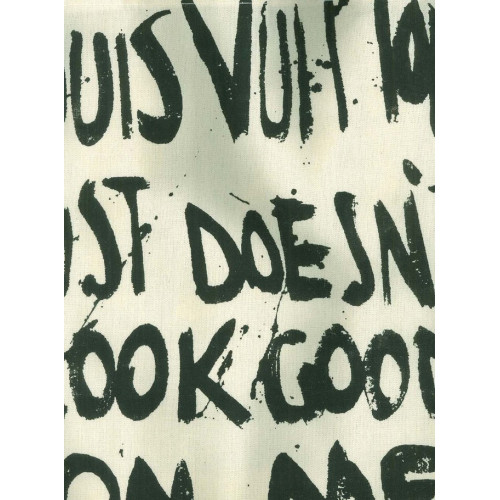 OUIS VUITTON
UST DOESN'
OOK GOOD
ON ME